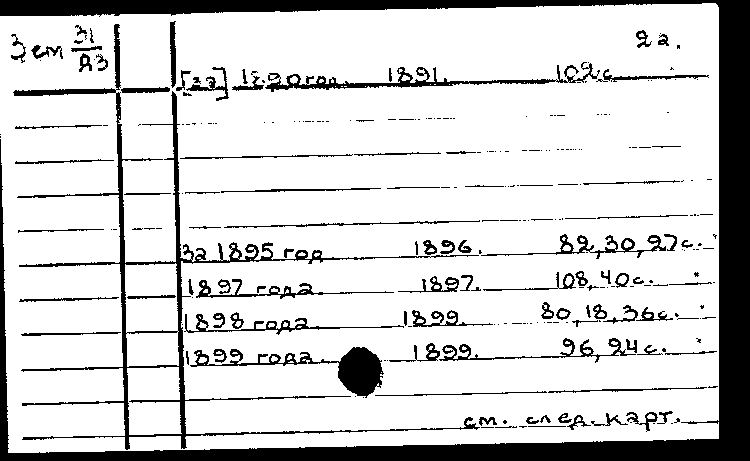 Зем 31/23
2а.
[за] 1890 год. 1891. 102 с
за 1895 год 1896. 82, 30, 27 с.
1897 года. 1897. 108, 40 с.
1898 года. 1899. 80, 18, 36 с.
1899 года. 1899. 96, 24 с.
см. след. карт.